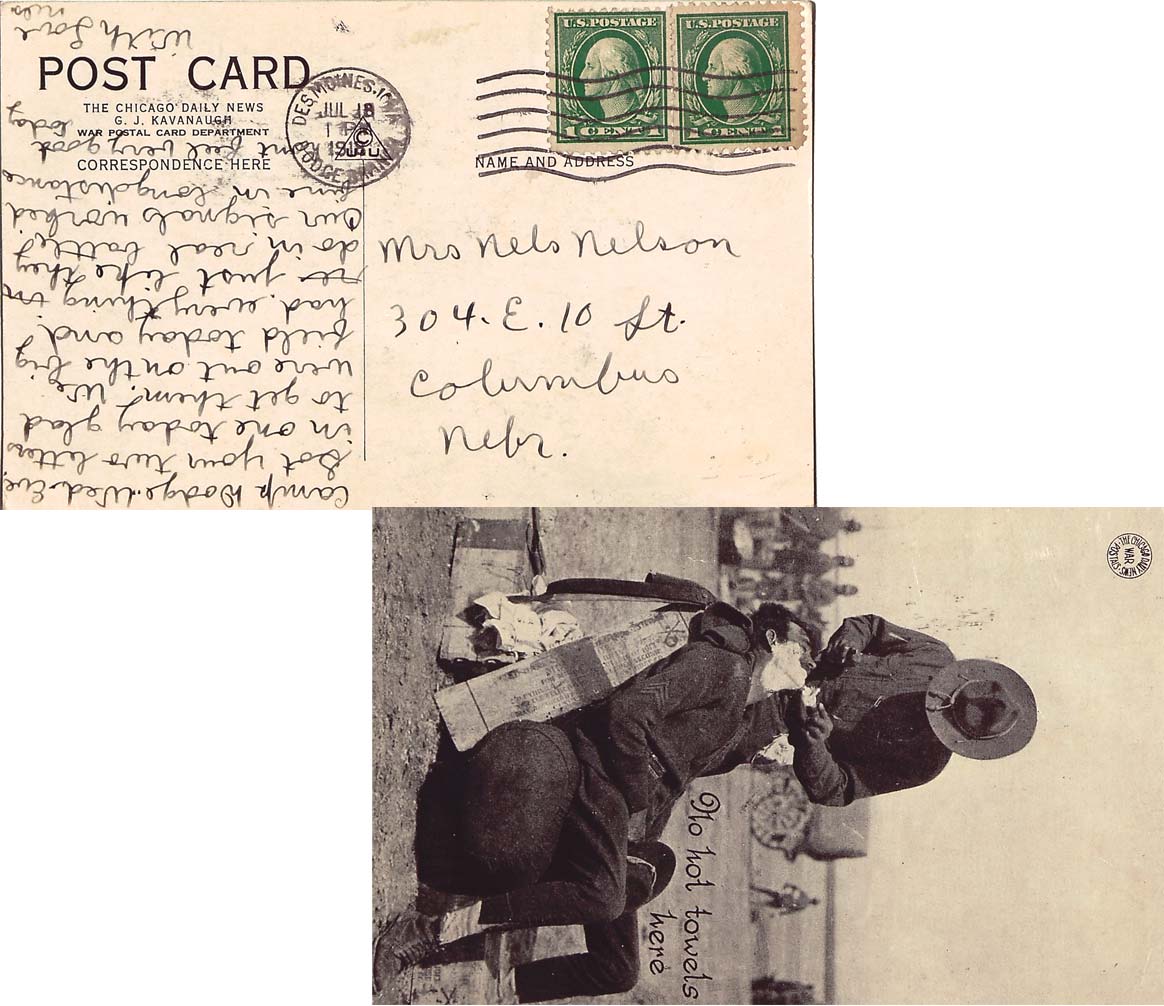 POST CARD
THE CHICAGO DAILY NEWS
G. J. KAVANAUGH
WAR POSTAL CARD DEPARTMENT
CORRESPONDENCE HERE
NAME AND ADDRESS
DES MOINES, IOWA
JUL 18
U.S. POSTAGE
1 CENT 1
U.S. POSTAGE
1 CENT 1
Mrs Nels Nelson
304. E. 10 St.
Columbus
Nebr.
Camp Dodge. Wed. Eve.
Got your two letters
in one today glad
to get them. We
were out on the big
field today and
had everything in
just like they
do in real battle.
Our signals worked
fine in longdistance
feel very good
today
With Love
Nels
THE CHICAGO DAILY NEWS
WAR
POSTALS
No hot towels
here